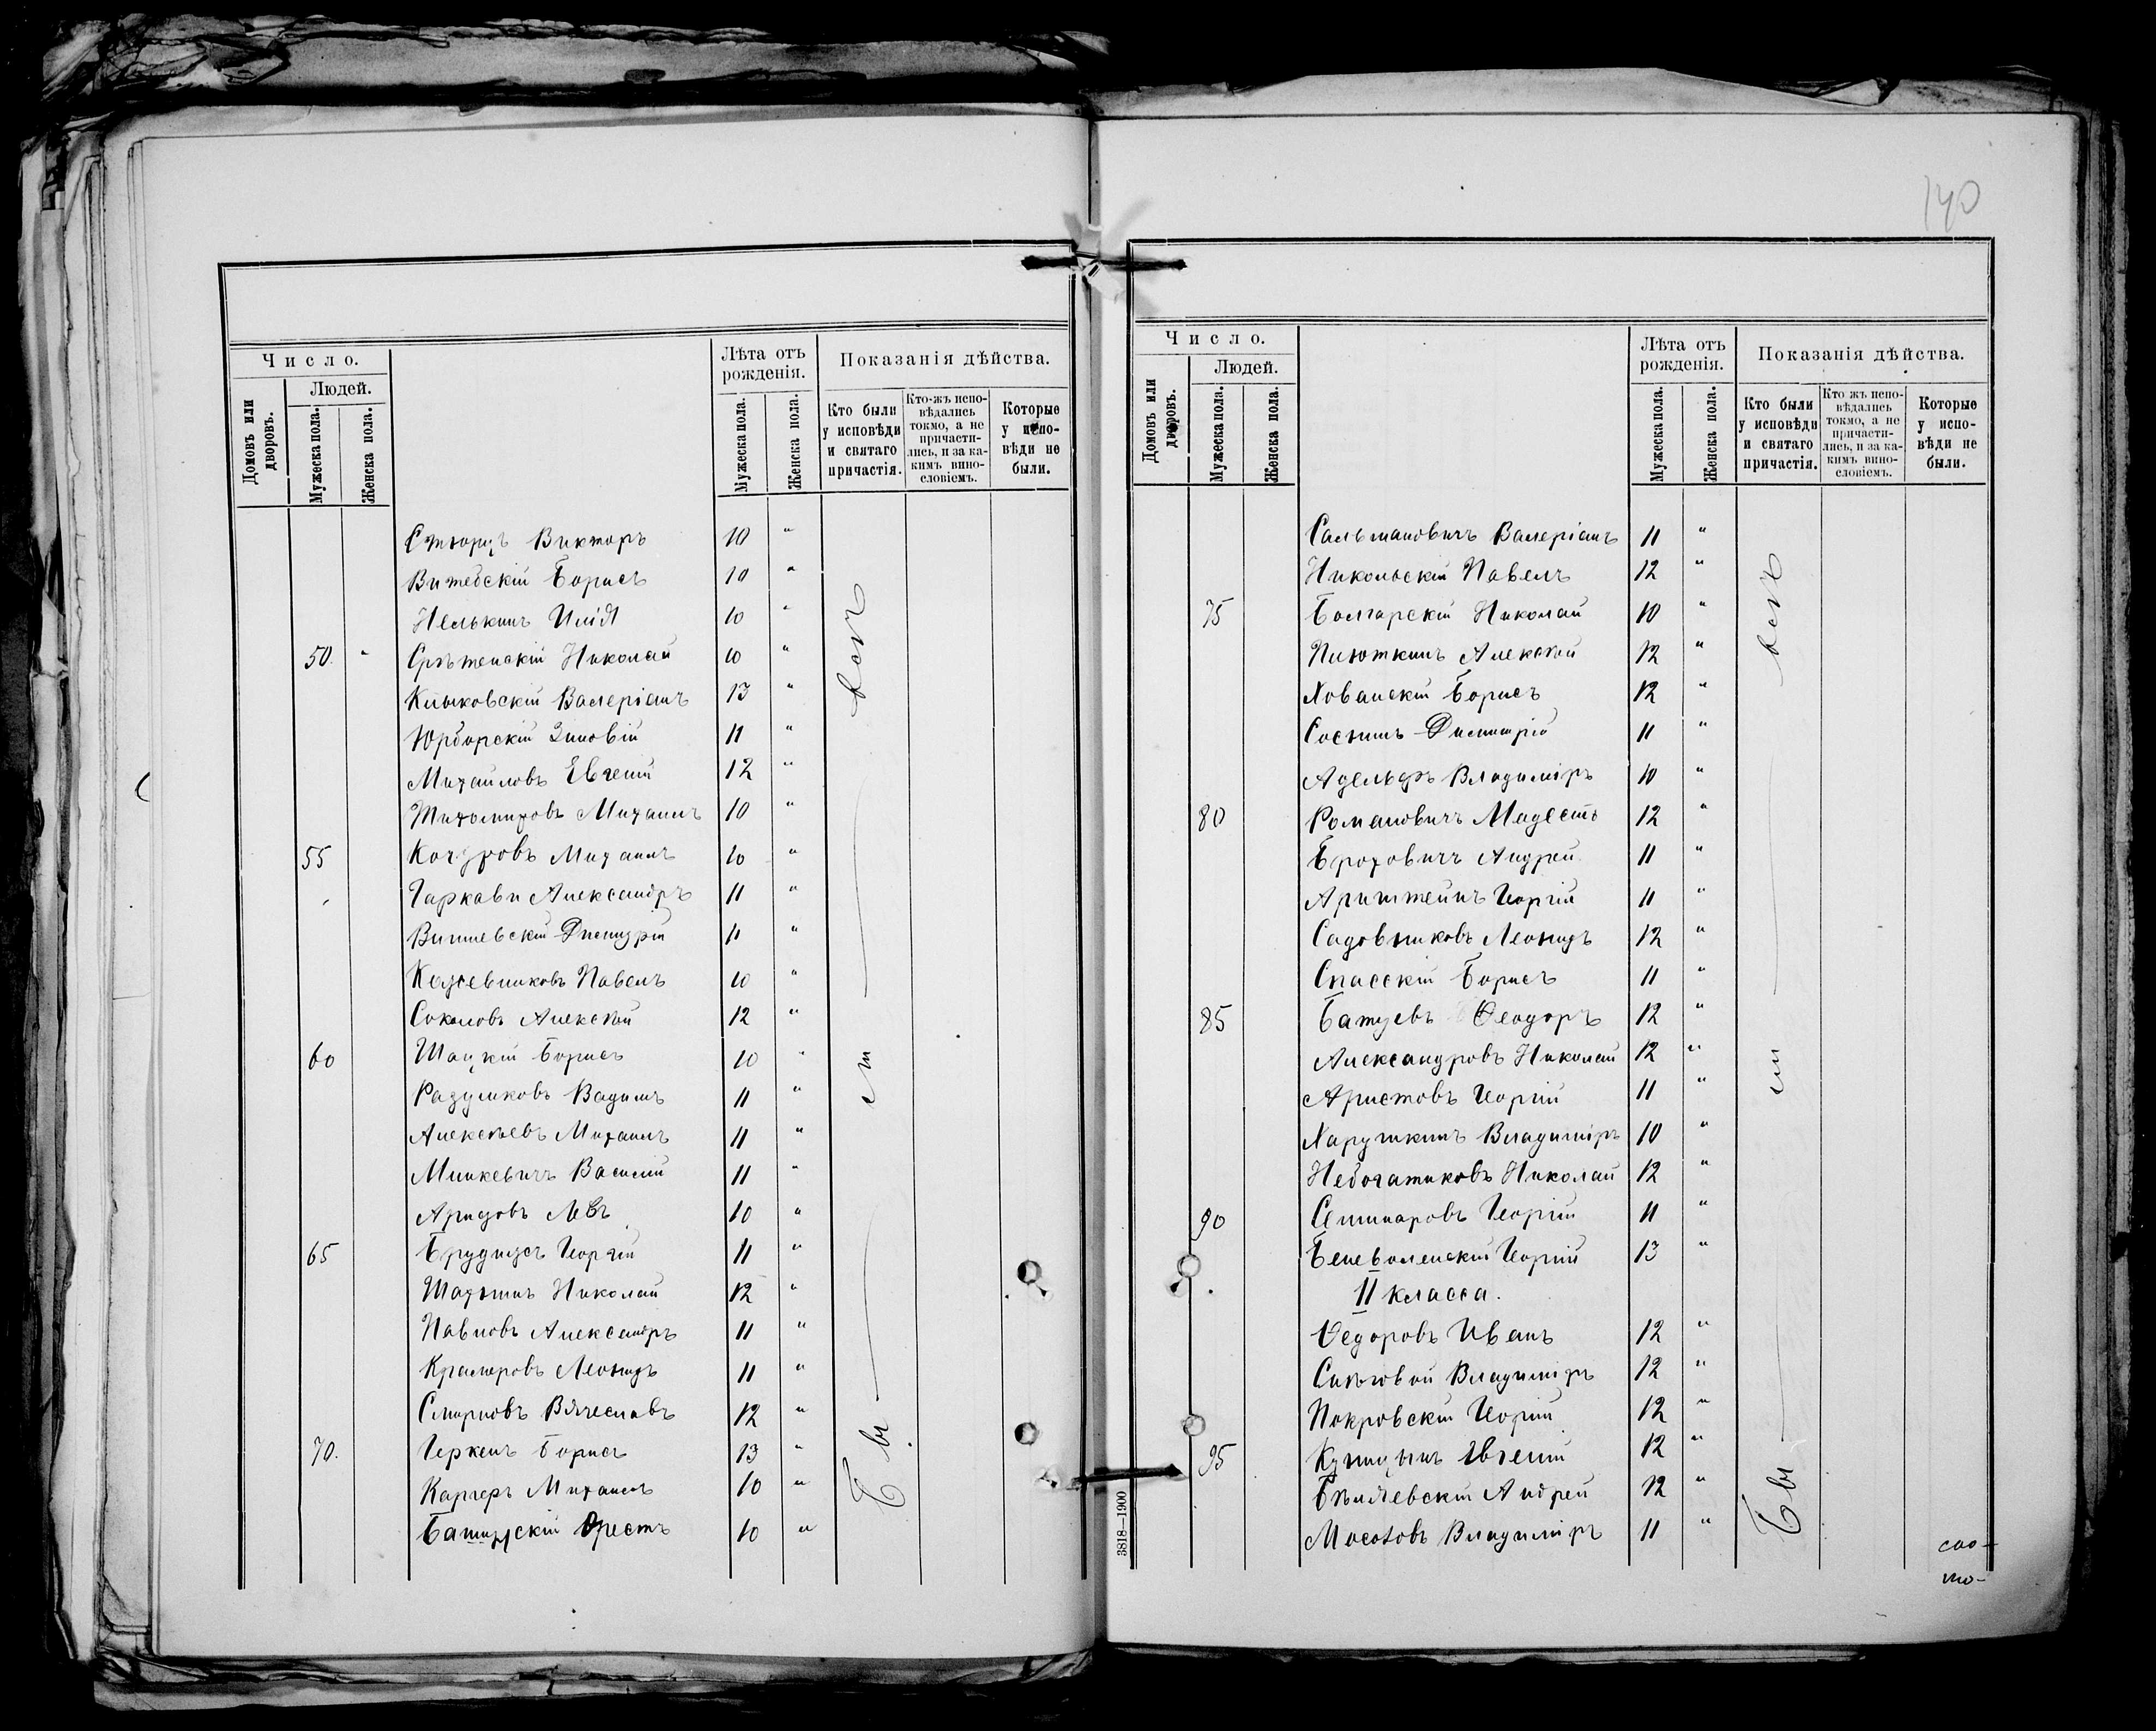 140
Число.
Домовъ или дворовъ.
Людей.
Мужеска пола.
Женска пола.
Лѣта отъ рожденія.
Мужеска пола.
Женска пола.
Показанія дѣйства.
Кто были у исповѣди и святаго причастія.
Кто-жъ исповѣдались токмо, а не причастились, и за какимъ винословіемъ.
Которые у исповѣди не были.
Викторъ 10 "
Витебскій Борисъ 10 "
Нелькинъ Илія 10 "
50. " Срѣтенскій Николай 10 "
Клыковскій Валеріанъ 13 "
Юрборскій Зиновій 11 "
Михайловъ Евгеній 12 "
Тихомировъ Михаилъ 10 "
55 Михаилъ 10 "
Гаркави Александръ 11 "
Вишневскій Димитрій 11 "
Кожевниковъ Павелъ 10 "
Соколовъ Алексѣй 12 "
60 Шацкій Борисъ 10 "
Вадимъ 11 "
Алексѣевъ Михаилъ 11 "
Минкевичъ Василій 11 "
Левъ 10 "
65 Георгій 11 "
Николай 12 "
Павловъ Александръ 11 "
Крамеровъ Леонидъ 11 "
Смирновъ Вячеславъ 12 "
70. Геркенъ Борисъ 13 "
Каргеръ Михаилъ 10 "
Орестъ 10 "
Бы — ст — вси
Число.
Домовъ или дворовъ.
Людей.
Мужеска пола.
Женска пола.
Лѣта отъ рожденія.
Мужеска пола.
Женска пола.
Показанія дѣйства.
Кто были у исповѣди и святаго причастія.
Кто жъ исповѣдались токмо, а не причастились, и за какимъ винословіемъ.
Которые у исповѣди не были.
Сальмановичъ Валеріанъ 11 "
Никольскій Павелъ 12 "
75 Болгарскій Николай 10 "
Плюткинъ Алексѣй 12 "
Хованскій Борисъ 12 "
Соснинъ Димитрій 11 "
Адельфъ Владиміръ 10 "
80 Романовичъ Модестъ 12 "
Броховичъ Андрей 11 "
Аринштейнъ Георгій 11 "
Садовниковъ Леонидъ 12 "
Спасскій Борисъ 11 "
85 Батуевъ Ѳеодоръ 12 "
Александровъ Николай 12 "
Аристовъ Георгій 11 "
Харузкинъ Владиміръ 10 "
Небогатиковъ Николай 12 "
90 Семинаровъ Георгій 11 "
Беневоленскій Георгій 13 "
II класса.
Ѳедоровъ Иванъ 12 "
Снѣговой Владиміръ 12 "
Покровскій Георгій 12 "
95 Куницынъ Евгеній 12 "
Бѣлявскій Андрей 12 "
Мосоловъ Владиміръ 11 "
Бы — ст — вси
3818—1900